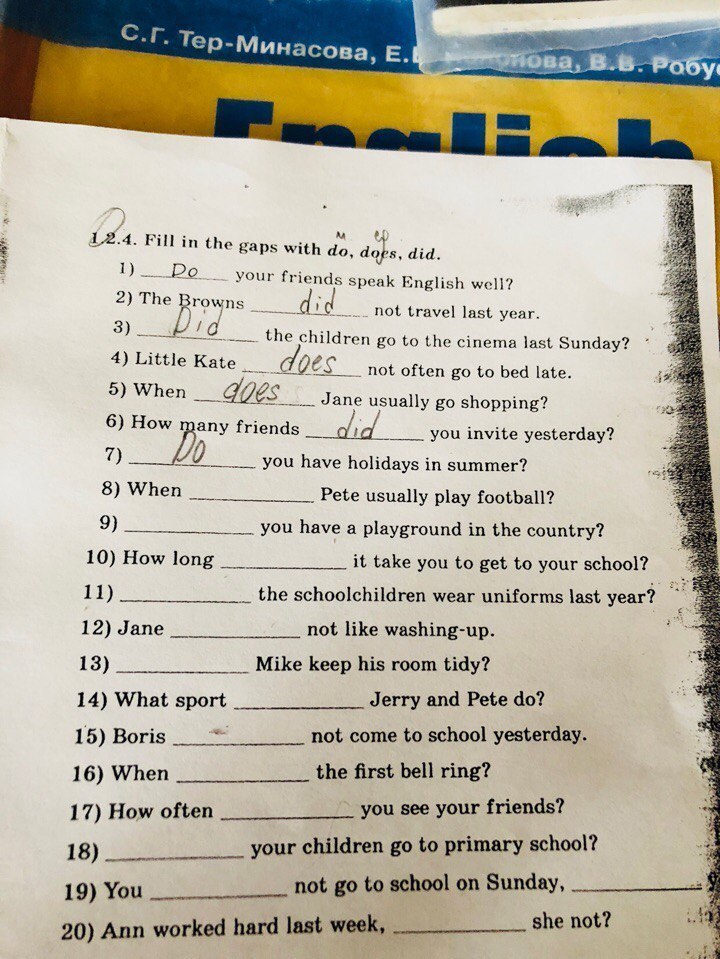 С.Г. Тер-Минасова, Е.В. В.В. Робус
English
1.2.4. Fill in the gaps with do, does, did.
1) Do your friends speak English well?
2) The Browns did not travel last year.
3) Did the children go to the cinema last Sunday?
4) Little Kate does not often go to bed late.
5) When does Jane usually go shopping?
6) How many friends did you invite yesterday?
7) Do you have holidays in summer?
8) When ____________ Pete usually play football?
9) ____________ you have a playground in the country?
10) How long ____________ it take you to get to your school?
11) ____________ the schoolchildren wear uniforms last year?
12) Jane ____________ not like washing-up.
13) ____________ Mike keep his room tidy?
14) What sport ____________ Jerry and Pete do?
15) Boris ____________ not come to school yesterday.
16) When ____________ the first bell ring?
17) How often ____________ you see your friends?
18) ____________ your children go to primary school?
19) You ____________ not go to school on Sunday, ____________
20) Ann worked hard last week, ____________ she not?